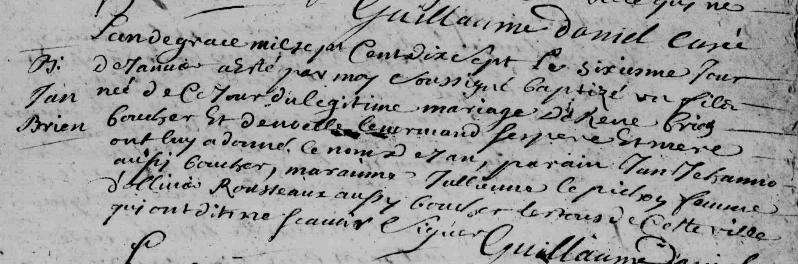 Guillaume Daniel Curé
Lan de grace mil sept Cent dix sept le sixiesme Jour
B: de Janvie a esté par moy soussigné baptizé un fils
Jan né de Ce Jour du legitime mariage De René brien
Brien boucher Et de noelle lenormand ses pere Et mere
ont luy a donné le nom de Jan, parain Jan Jehanno
aussy boucher, maraine Jullienne le pichon femme
d'ollivie Rousseaux aussy boucher les tous de Cette ville
qui ont dit ne scavoir Signer
Guillaume Daniel